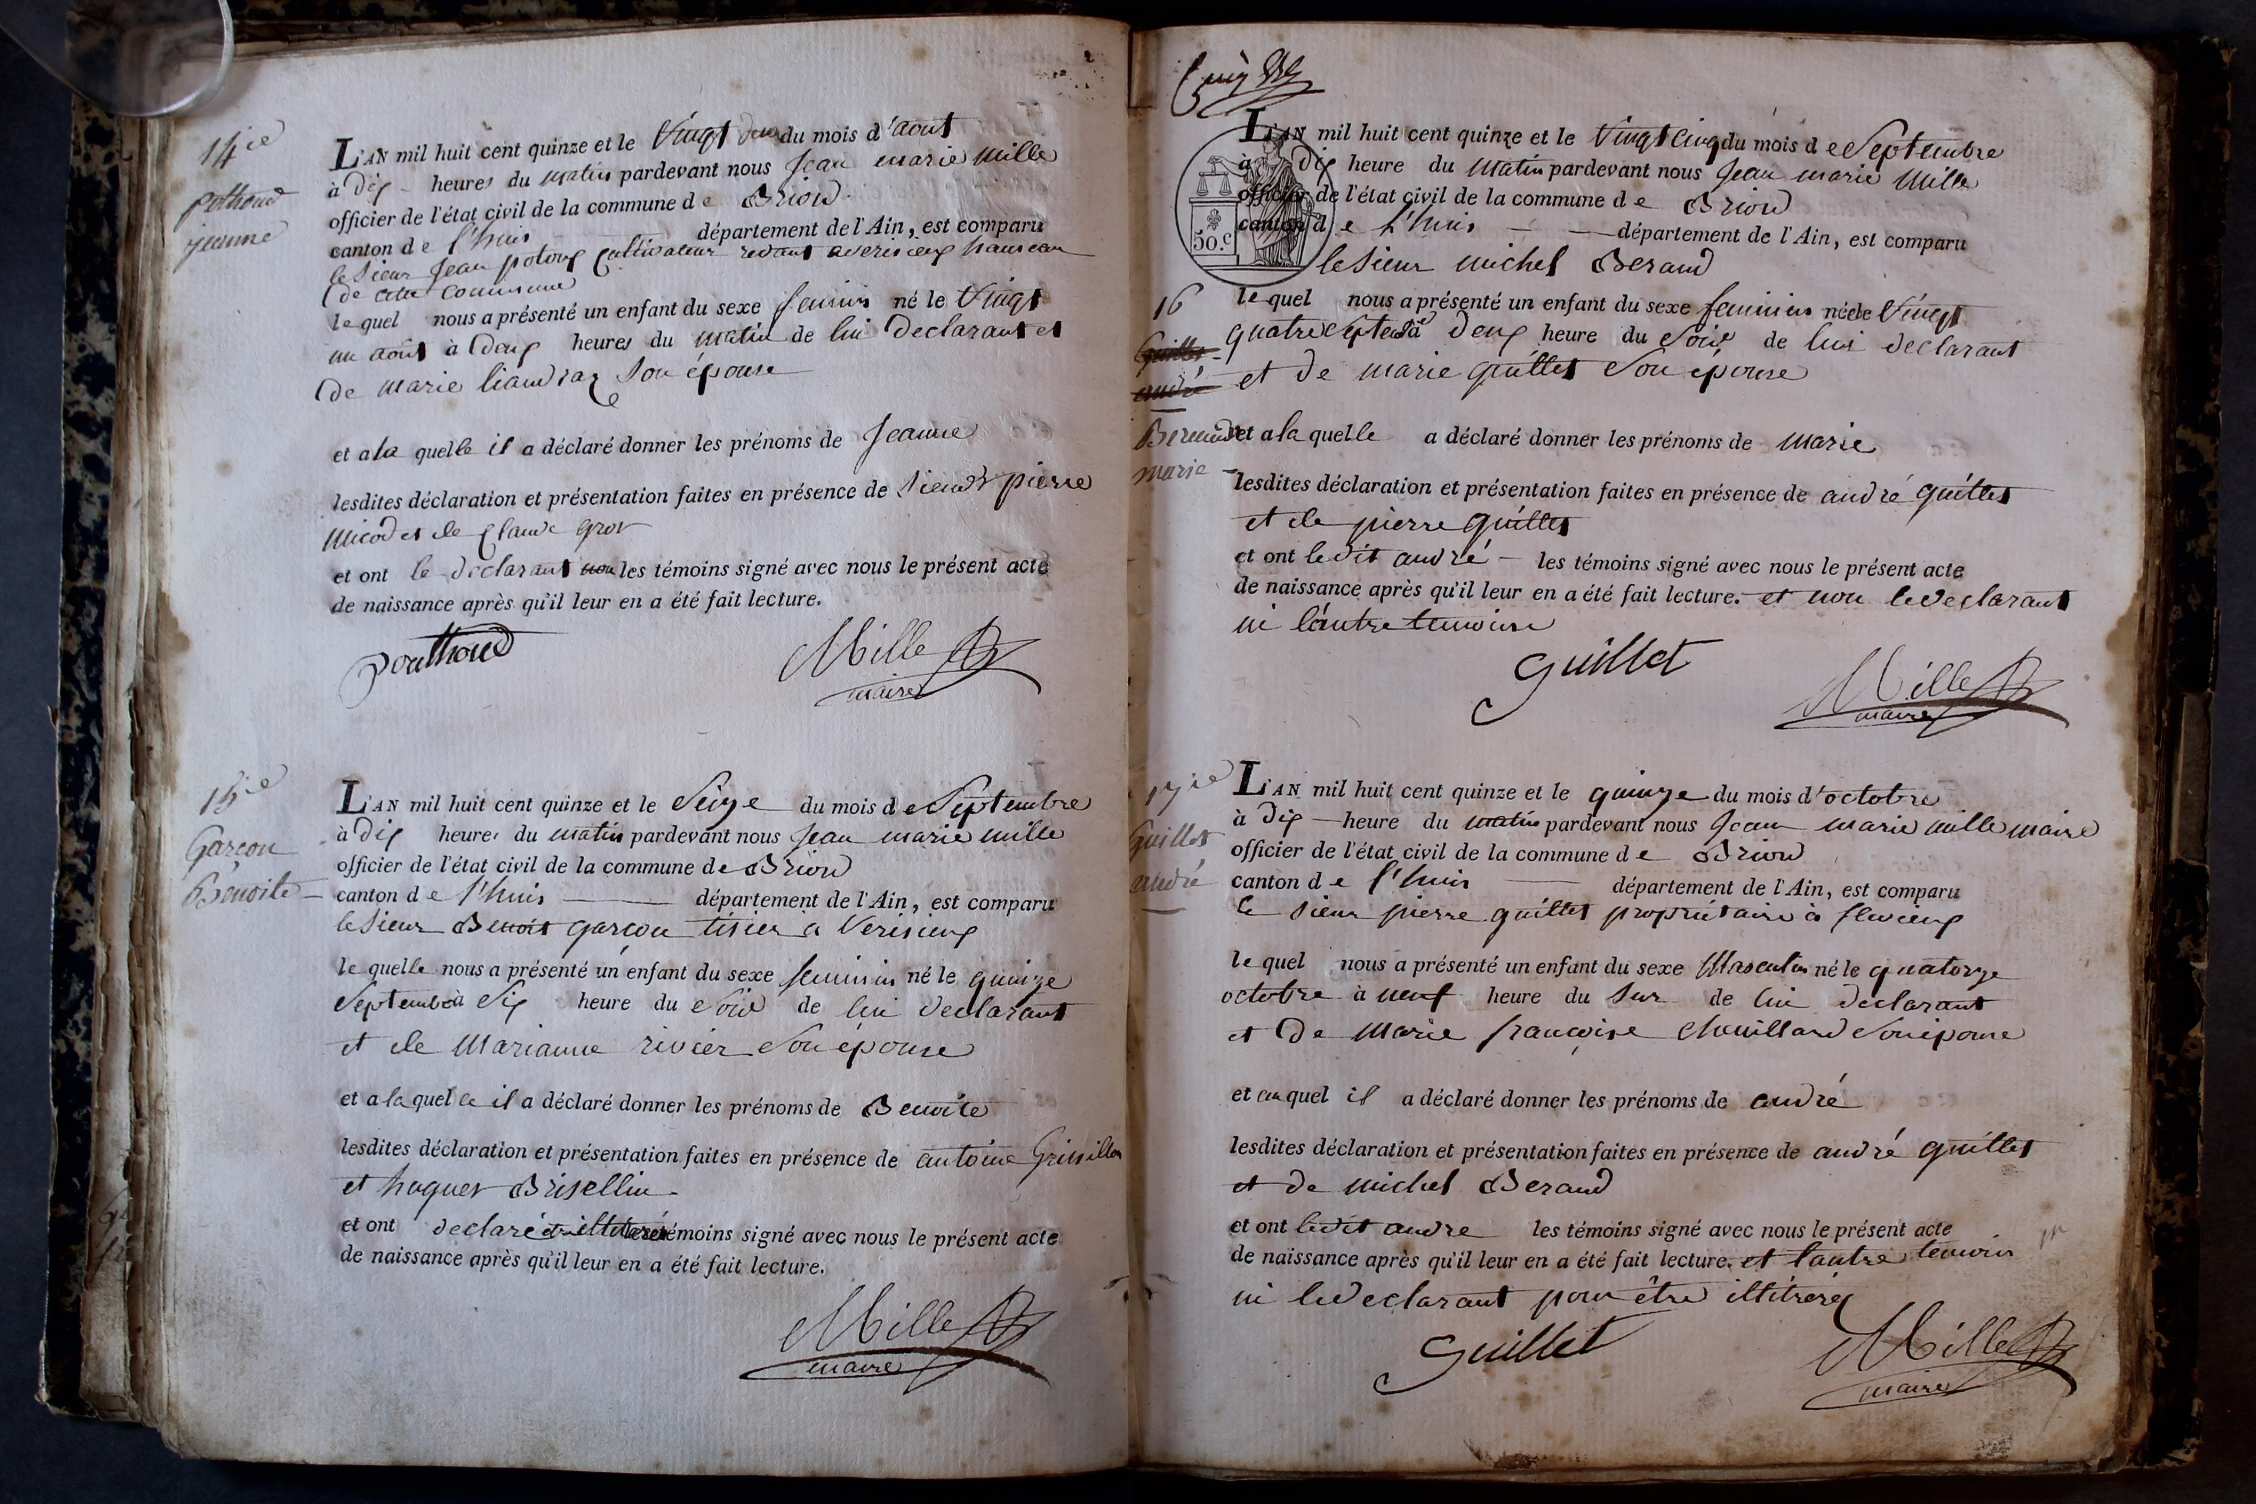 14ie
pothoud
jeanne
L'AN mil huit cent quinze et le Vingt deux du mois d'aout
à dix heures du matin pardevant nous Jean marie Mille
officier de l'état civil de la commune de Briord
canton de l'huis département de l'Ain, est comparu
le Sieur Jean cultivateur hameau
de cette commune
lequel nous a présenté un enfant du sexe feminin né le Vingt
un août à Deux heures du matin de lui Declarant et
De marie liandraz Son épouse
et a la quelle il a déclaré donner les prénoms de Jeanne
lesdites déclaration et présentation faites en présence de pierre
micod et de Claude gros
et ont le declarant non les témoins signé avec nous le présent acte
de naissance après qu'il leur en a été fait lecture.
pouthoud
Mille
maire
15ie
Garçon
Benoite
L'AN mil huit cent quinze et le Seize du mois de Septembre
à dix heures du matin pardevant nous Jean marie mille
officier de l'état civil de la commune de Briord
canton de l'huis département de l'Ain, est comparu
le Sieur Benoit garçon tisier a Verisieux
le quelle nous a présenté un enfant du sexe feminin né le quinze
Septembre à Six heure du Soir de lui declarant
et de Marianne rivier Son épouse
et a la quelle il a déclaré donner les prénoms de Benoite
lesdites déclaration et présentation faites en présence de antoine Grisillon
et huguet Brisellin
et ont declaré être illiterés témoins signé avec nous le présent acte
de naissance après qu'il leur en a été fait lecture.
Mille
maire
50.c
L'AN mil huit cent quinze et le Vingt cinq du mois de Septembre
à dix heure du matin pardevant nous Jean marie Mille
officier de l'état civil de la commune de Briord
canton de l'huis département de l'Ain, est comparu
le Sieur michel Beraud
16
Guillet
andré
Beraud
marie
le quel nous a présenté un enfant du sexe feminin née le Vingt
quatre Septembre à deux heure du Soir de lui declarant
et de marie guillet Son épouse
et a la quelle a déclaré donner les prénoms de marie
lesdites déclaration et présentation faites en présence de andré guillet
et de pierre guillet
et ont ledit andré les témoins signé avec nous le présent acte
de naissance après qu'il leur en a été fait lecture. et non le declarant
ni l'autre temoins
Guillet
Mille
maire
17ie
Guillet
andré
L'AN mil huit cent quinze et le quinze du mois d'octobre
à dix heure du matin pardevant nous Jean marie mille maire
officier de l'état civil de la commune de Briord
canton de l'huis département de l'Ain, est comparu
le Sieur pierre guillet propriétaire à flevieux
le quel nous a présenté un enfant du sexe Masculin né le quatorze
octobre à neuf heure du Sur de lui declarant
et De Marie françoise Chouillard Son épouse
et au quel il a déclaré donner les prénoms de andré
lesdites déclaration et présentation faites en présence de andré guillet
et de michel Beraud
et ont ledit andre les témoins signé avec nous le présent acte
de naissance après qu'il leur en a été fait lecture. et l'autre temoin
ni le declarant pour être illitéré
Guillet
Mille
maire